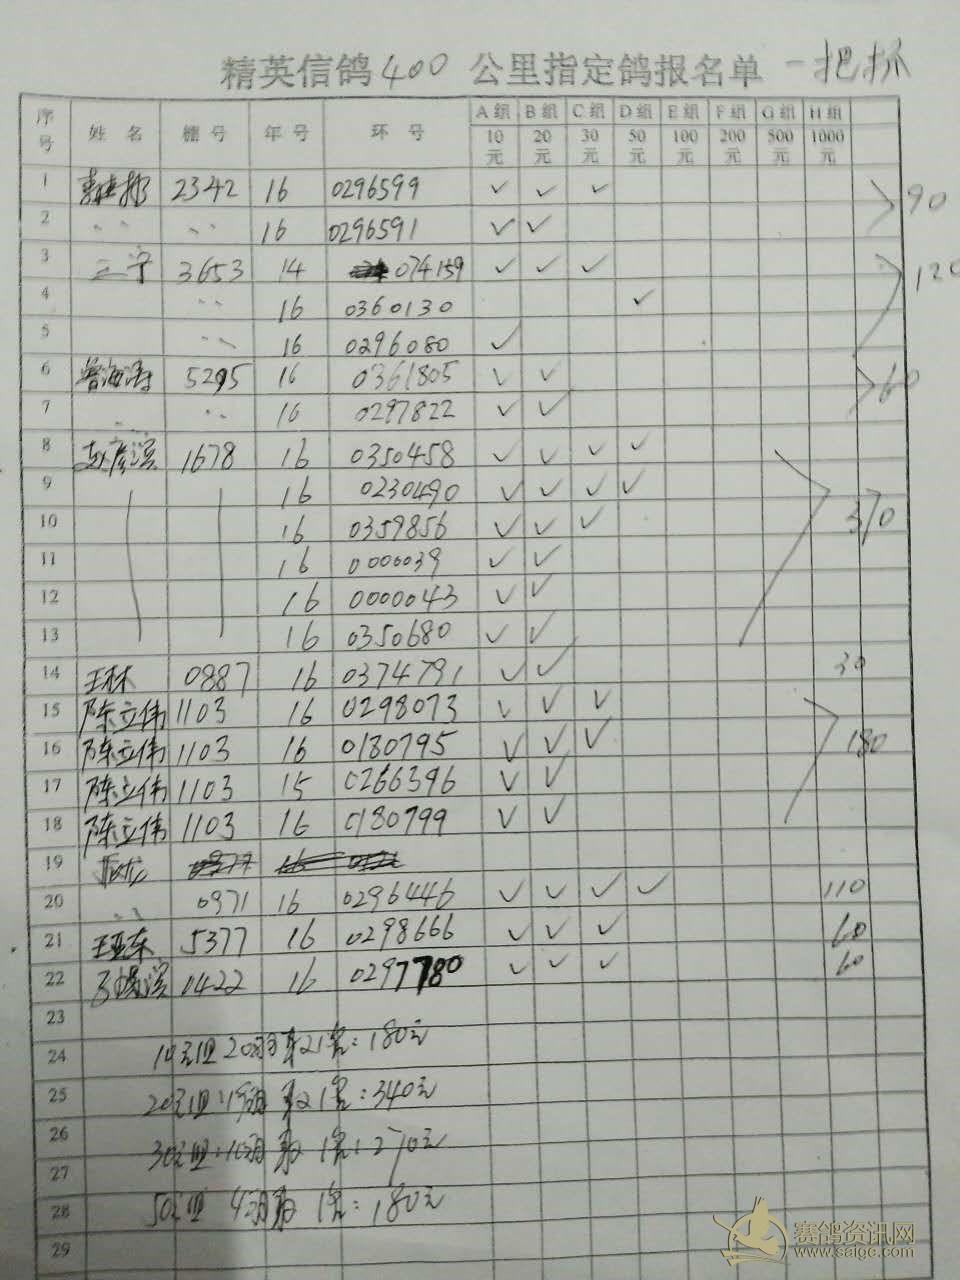 精英信鸽400 公里指定鸽报名单 一把抓
序号 姓名 棚号 年号 环号 A组 B组 C组 D组 E组 F组 G组 H组
10元 20元 30元 50元 100元 200元 500元 1000元
1 2342 16 0296599 ✓ ✓ ✓
90
2 〃 〃 16 0296591 ✓ ✓
3 三宁 3653 14 074159 ✓ ✓ ✓
120
4 〃 16 0360130 ✓
5 〃 16 0296080 ✓
6 鲁海涛 5295 16 0361805 ✓ ✓
60
7 〃 〃 16 0297822 ✓ ✓
8 赵彦滨 1678 16 0350458 ✓ ✓ ✓ ✓
9 16 0230490 ✓ ✓ ✓ ✓
10 16 0359856 ✓ ✓ ✓
370
11 16 0000039 ✓ ✓
12 16 0000043 ✓ ✓
13 16 0350680 ✓ ✓
14 王林 0887 16 0374791 ✓ ✓ 30
15 陈立伟 1103 16 0298073 ✓ ✓ ✓
16 陈立伟 1103 16 0180795 ✓ ✓ ✓
180
17 陈立伟 1103 15 0266396 ✓ ✓
18 陈立伟 1103 16 0180799 ✓ ✓
19
20 〃 0971 16 0296446 ✓ ✓ ✓ ✓ 110
21 王亚东 5377 16 0298666 ✓ ✓ ✓ 60
22 0422 16 0297780 ✓ ✓ ✓ 60
23
24 10元组20羽 取2名：180元
25 20元组：19羽 取2名：340元
26 30元组：10羽 取1名：270元
27
28 50元组 4羽取1名：180元
29
赛鸽资讯网
www.saige.com